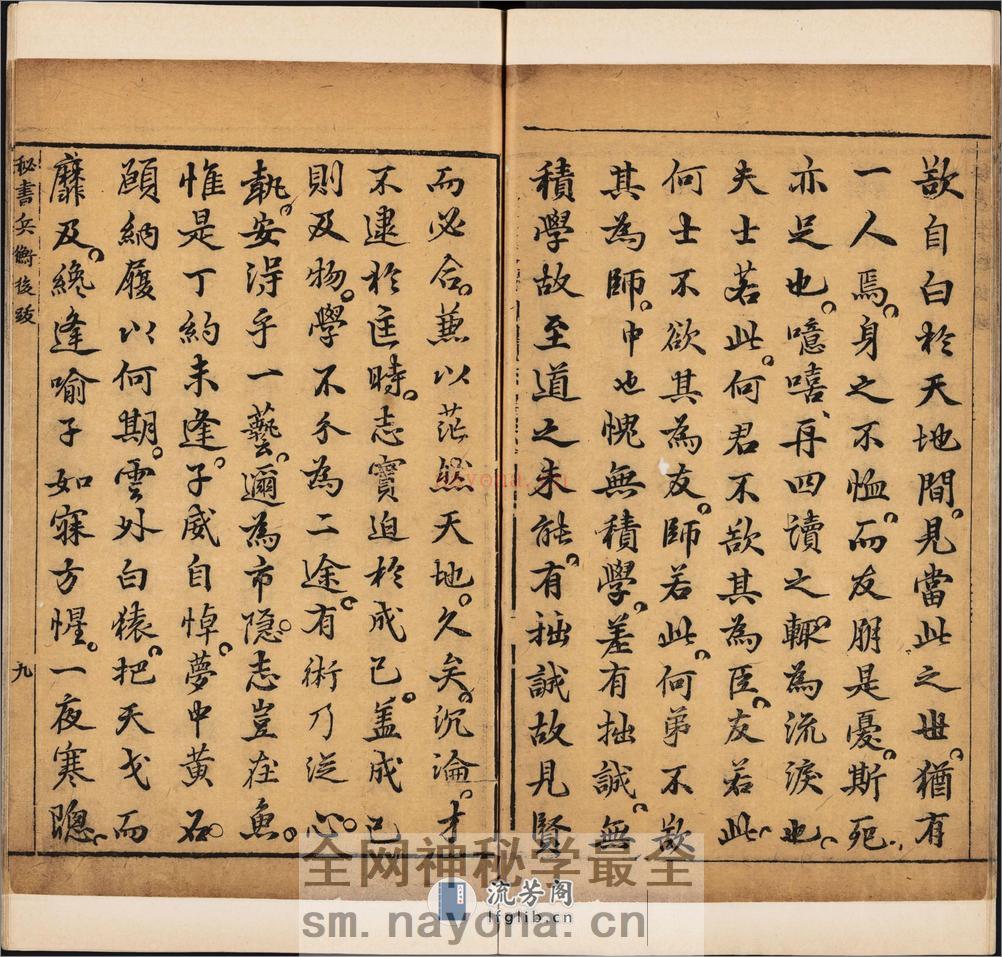 欲自白於天地間見當此之世猶有
一人焉身之不恤而友朋是憂斯死
亦足也噫嘻再四讀之輒為流淚也
夫士若此何君不欲其為臣友若此
何士不欲其為友師若此何弟不欲
其為師中也愧無積學差有拙誠無
積學故至道之未能有拙誠故見賢
而必合蕙以茫然天地久矣沉淪才
不逮於匡時志實迫於成己盖成己
則及物學不分為二途有術乃從心
執安得乎一藝邇為市隐志豈在魚
惟是丁約未逢子威自悼夢中黄石
頋納履以何期雲外白猿把天戈而
靡及纔逢喻子如寐方惺一夜寒聰
秘書兵衡後跋
九
nayona.cn
全网神秘学最全
流芳阁
lfglib.cn
sm.nayona.cn